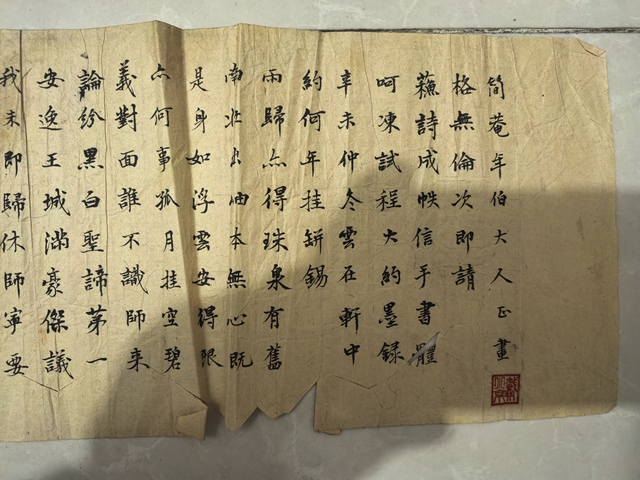 我未即歸休師寧要
安逸王城滿豪傑議
論紛黑白聖諦第一
義對面誰不識師来
亦何事孤月挂空碧
是身如浮雲安得限
南北出岫本無心既
雨歸亦得珠泉有舊
約何年挂缾錫
辛未仲冬雲在軒中
呵凍試程大約墨錄
蘓詩成帙信手書體
格無倫次即請
簡菴年伯大人正畫